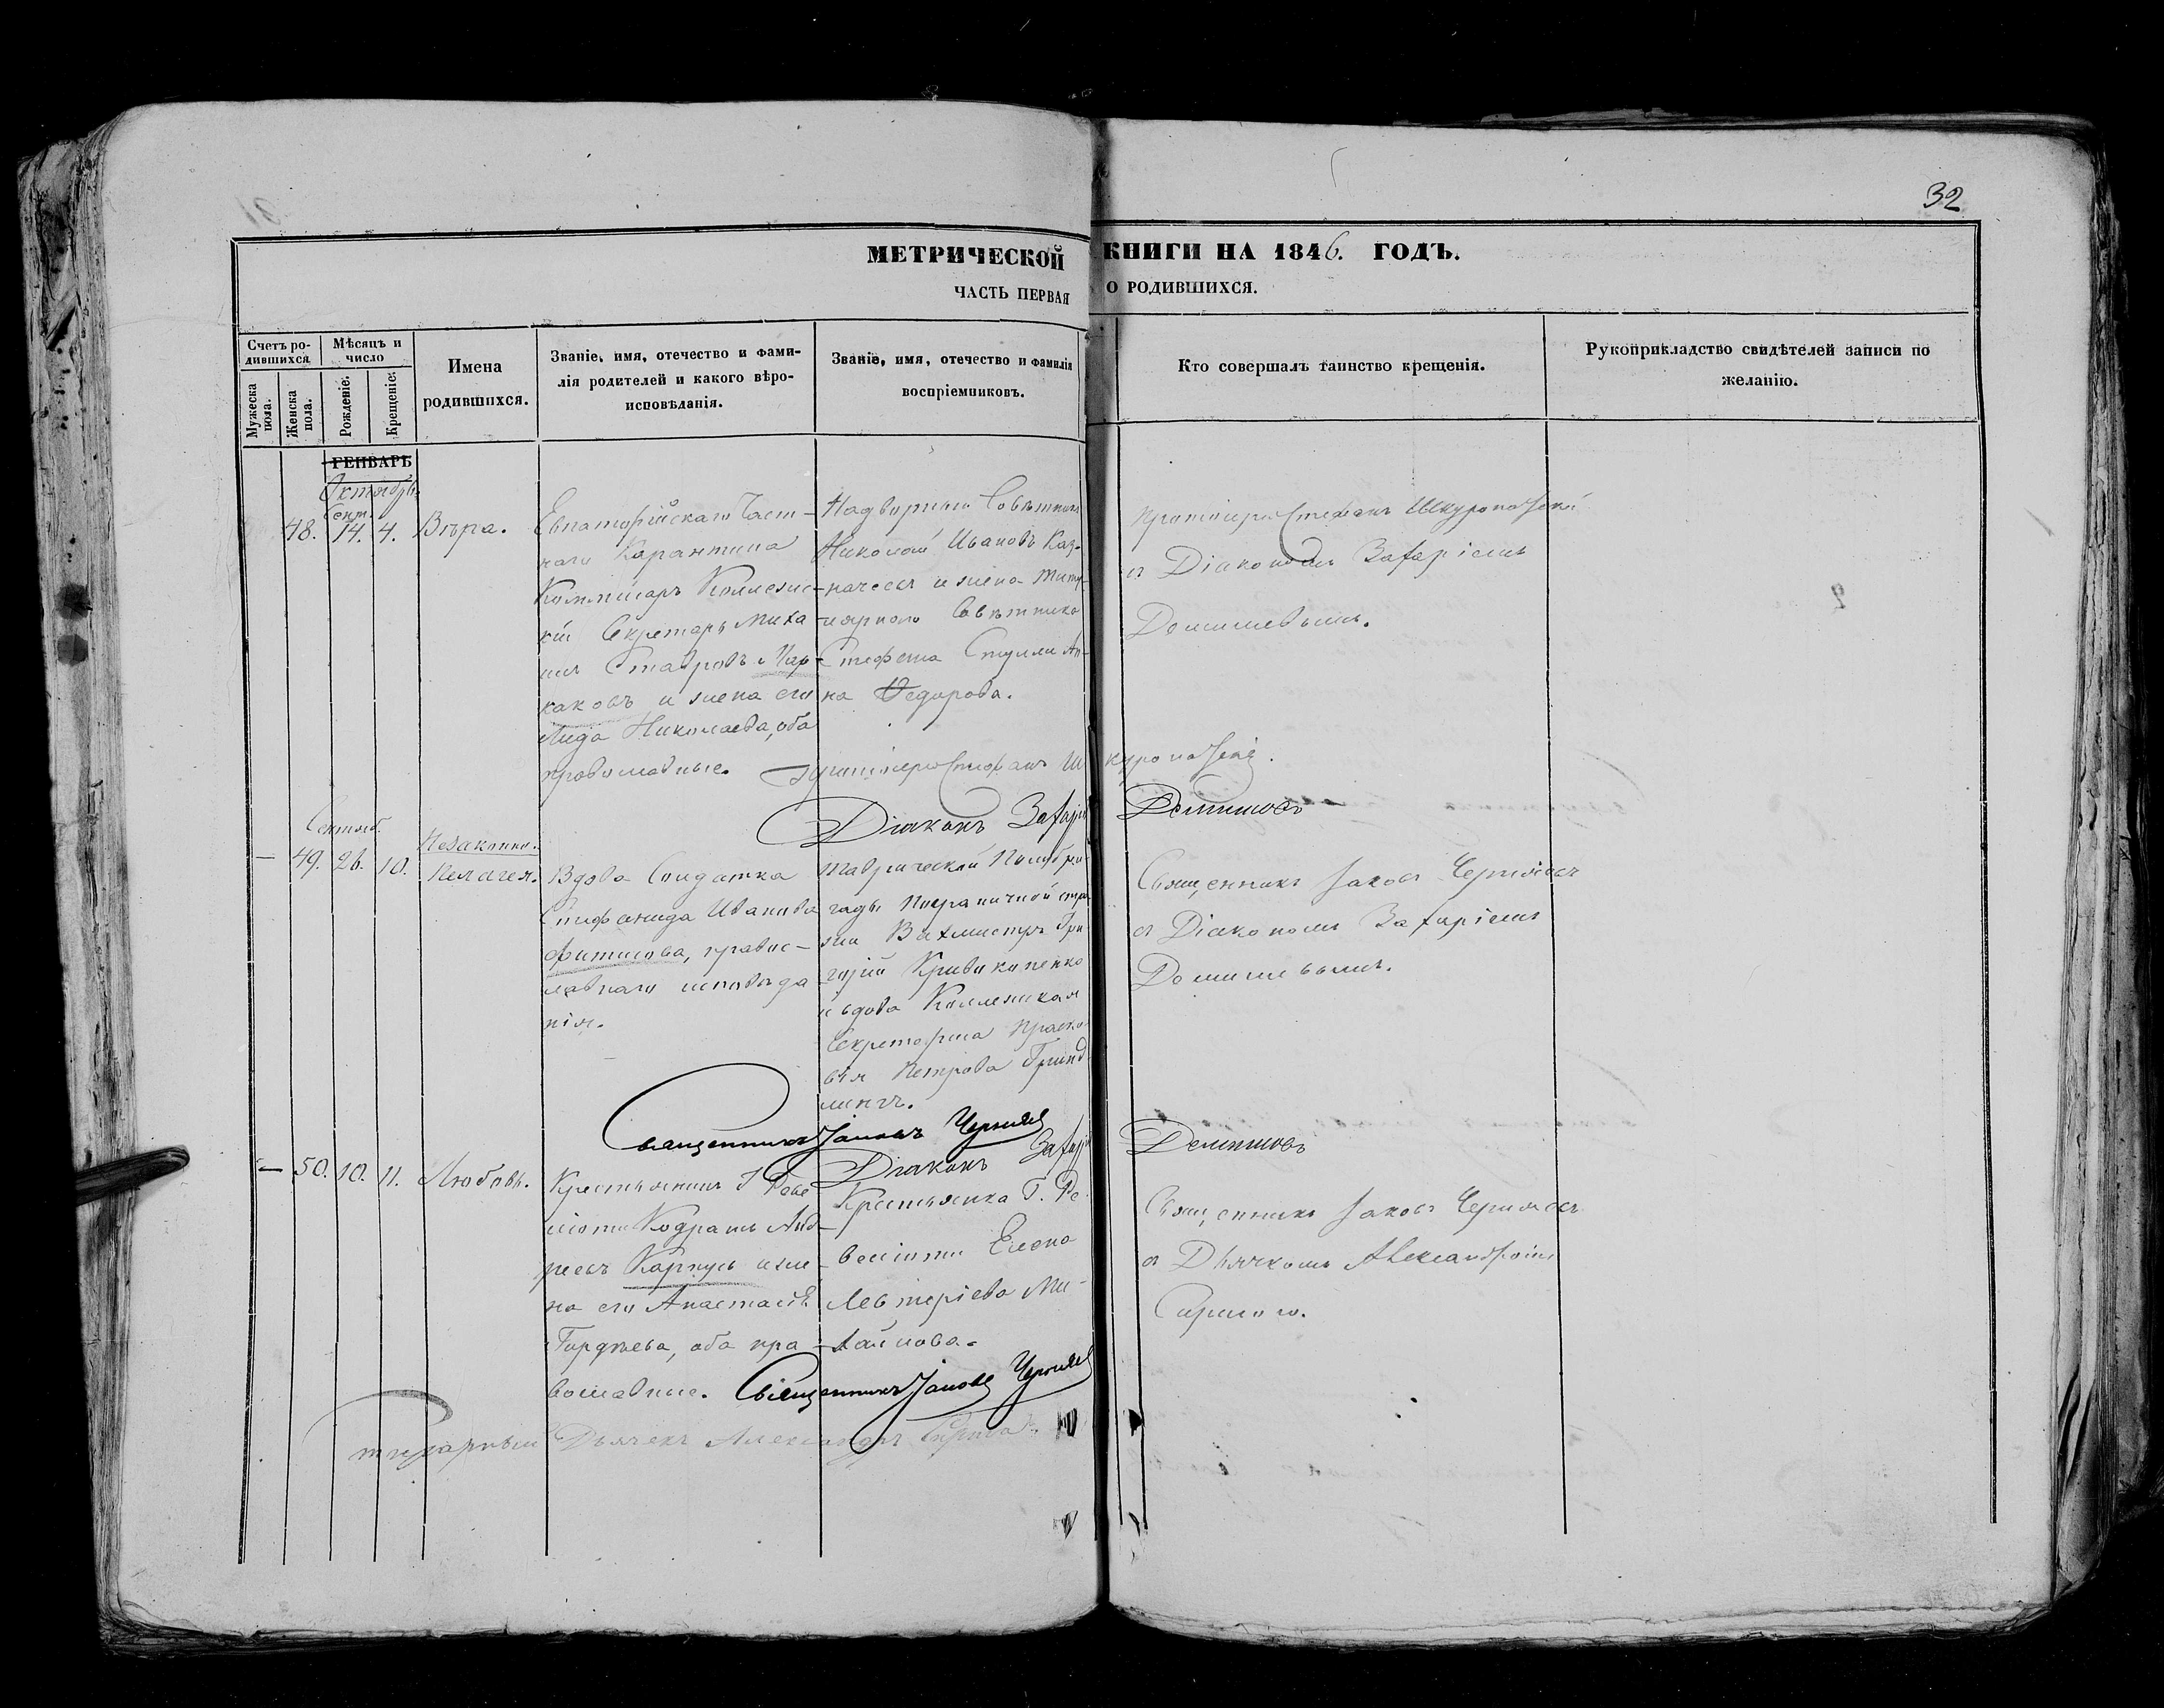 32
МЕТРИЧЕСКОЙ КНИГИ НА 1846. ГОДЪ.
ЧАСТЬ ПЕРВАЯ О РОДИВШИХСЯ.
Счетъ ро-
дившихся
Мужеска пола.
Женска пола.
Мѣсяцъ и
число
Рожденіе.
Крещеніе.
Имена
родившихся.
Званіе, имя, отечество и фами-
лія родителей и какого вѣро-
исповѣданія.
Званіе, имя, отечество и фамилія
воспріемниковъ.
Кто совершалъ таинство крещенія.
Рукоприкладство свидѣтелей записи по
желанію.
ГЕНВАРЬ
Октябрь.
Сент.
48. 14. 4. Вѣра.
Евпаторійскаго Част-
наго Карантина
Коммисаръ Коллежс-
кій Секретарь Миха
илъ Ставровъ Мар-
каковъ и жена его
Лида Николаева, оба
православные.
Надворный Совѣтникъ
Николай Ивановъ Каз-
начеевъ и жена Титу-
лярнаго Совѣтника
Стефана Стулли Ан-
на Ѳедорова.
Протоіерей Стефанъ Шкуропадскій
съ Діакономъ Захаріемъ
Демишевымъ.
Протоіерей Стефанъ Шкуропадскій.
Діаконъ Захарій Демишевъ
Сентяб.
— 49. 26. 10.
Незаконно.
Пелагея.
Вдова Солдатка
Стефанида Иванова
Фатисова, правос-
лавнаго исповѣда
нія.
Таврической Полубри
гады Пограничной стра
жи Вахмистръ Гри
горій Кривокопенко
и вдова Коллежская
Секретарша Праско
вія Петрова Гринд
лингъ.
Священникъ Іаковъ Чернявъ
съ Діакономъ Захаріемъ
Демишевымъ.
Священникъ Іаковъ Чернявъ
Діаконъ Захарій Демишевъ
— 50. 10. 11. Любовь.
Крестьянинъ Г. Реве
ліоти Кодратъ Анд-
реевъ Карпусь и же
на его Анастасія
Гордѣева, оба пра
вославные.
Крестьянка Г. Ре
веліоти Елена
Левтеріева Ми-
хайлова.
Священникъ Іаковъ Чернявъ
съ Дьячкомъ Александромъ
Священникъ Іаковъ Чернявъ
Дьячекъ Александръ